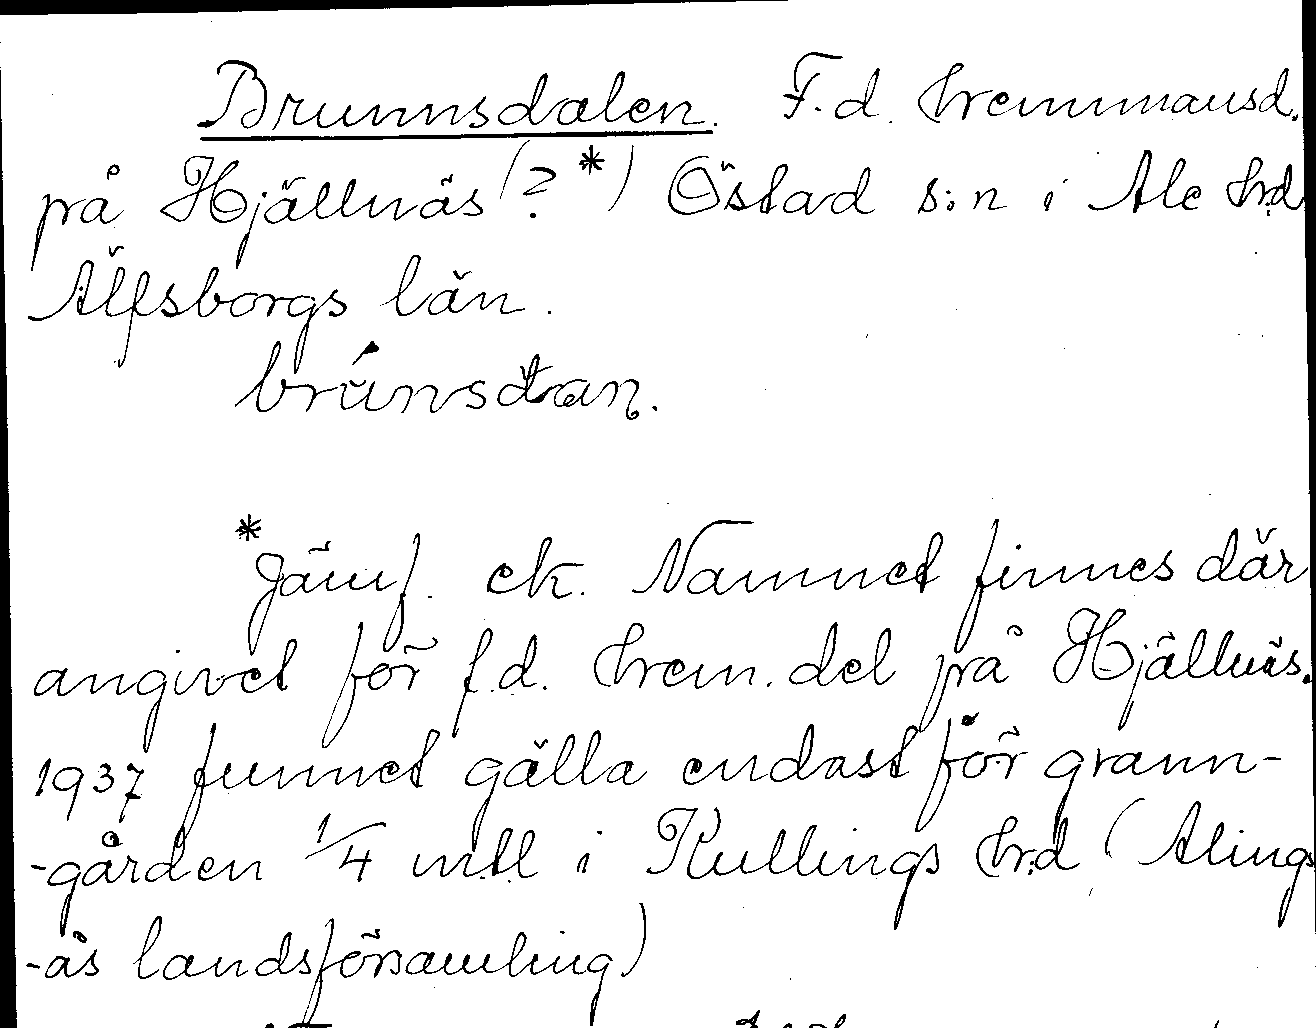 Brunnsdalen. F.d. hemmansd.
på Hjällnäs (?*) Östad s:n i Ale hrd
Älfsborgs län.
*Jämf. ek. Namnet finnes där
angivet för f.d. hem. del på Hjällnäs.
1937 funnet gälla endast för grann-
-gården 1/4 mtl i Kullings hrd (Alings
-ås landsförsamling)